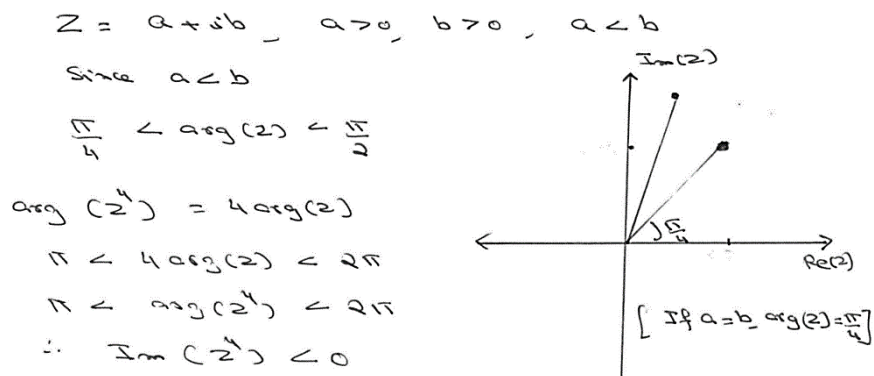 Z = a + ib, a>0, b>0, a<b
Since a<b
π/4 < arg(z) < π/2
arg (z⁴) = 4arg(z)
π < 4arg(z) < 2π
π < arg(z⁴) < 2π
∴ Im(z⁴) < 0
Im(z)
π/4
Re(z)
[ If a=b, arg(z)=π/4]